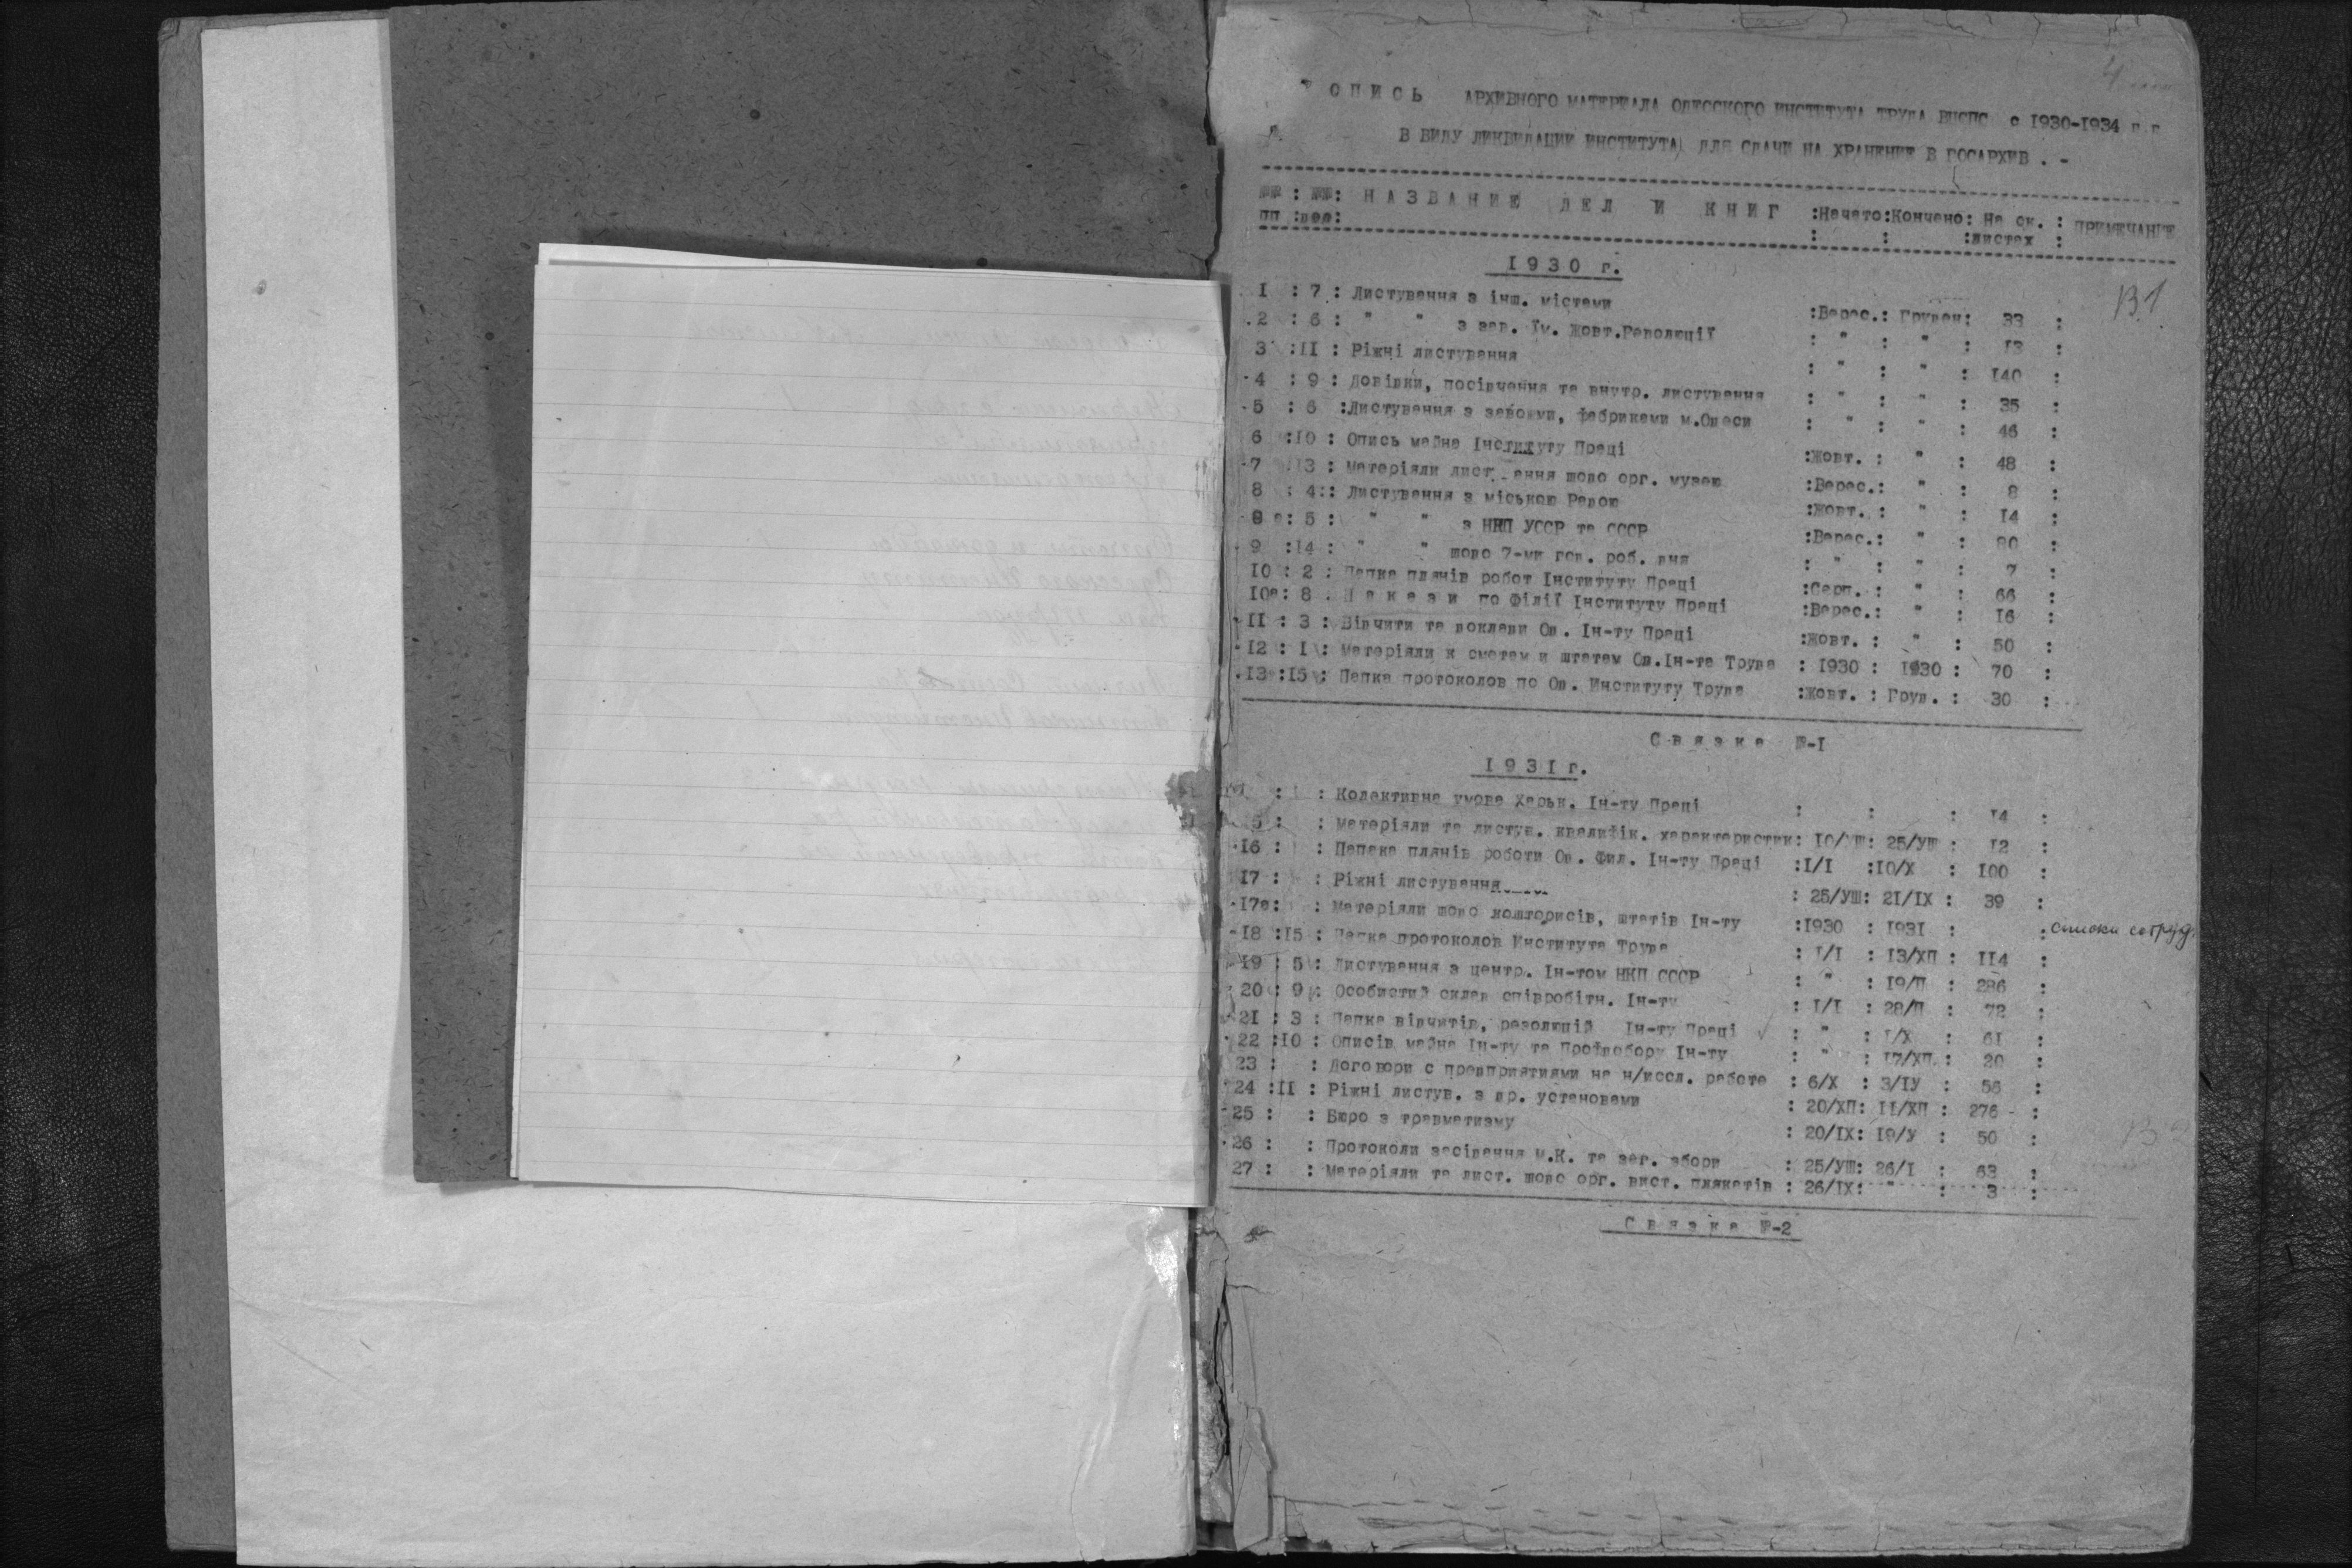 4
О П И С Ь АРХИВНОГО МАТЕРИАЛА ОДЕССКОГО ИНСТИТУТА ТРУДА ВЦСПС с 1930-1934 г.г
В ВИДУ ЛИКВИДАЦИИ ИНСТИТУТА, ДЛЯ СДАЧИ НА ХРАНЕНИЕ В ГОСАРХИВ . -
№№ : №№: Н А З В А Н И Е Д Е Л И К Н И Г :Начато:Кончено: На ск. : ПРИМЕЧАНИЕ
ПП :дел: : : :листах :
1 9 3 0 г.
1 : 7 : Листування з інш. містами :Верес.: Груден: 33 :
2 : 6 : " " з зав. Їм. Жовт.Революції : " : " : 13 :
3 :11 : Ріжні листування : " : " : 140 :
4 : 9 : Довідки, посівчення та внутр. листування : " : " : 35 :
5 : 6 :Листування з заводми, фабриками м.Одеси : " : " : 46 :
6 :10 : Опись майна Інституту Праці :Жовт. : " : 48 :
7 :13 : Матеріяли лист ання щодо орг. музею :Верес.: " : 8 :
8 : 4 : Листування з міською Радою :Жовт. : " : 14 :
8 а: 5 : " " з НКП УССР та СССР :Верес.: " : 80 :
9 :14 : " " щодо 7-ми год. роб. дня : " : " : 7 :
10 : 2 : Папка плянів робот Інституту Праці :Серп. : " : 66 :
10а: 8 . Н а к а з и по Філії Інституту Праці :Верес.: " : 16 :
11 : 3 : Відчити та доклади Од. Ін-ту Праці :Жовт. : " : 50 :
12 : 1 : Матеріяли к сметам и штатам Од.Ін-та Труда : 1930 : 1930 : 70 :
13 :15 : Папка протоколов по Од. Институту Труда :Жовт. : Груд. : 30 :
С в я з к а №-1
1 9 3 1 г.
: : Колективна умова Харьк. Ін-ту Праці : : : 14 :
5 : : Матеріяли та листув. квалифік. характеристик: 10/УШ: 25/УШ : 12 :
16 : : Папака плянів роботи Од. Фил. Ін-ту Праці :1/1 :10/Х : 100 :
17 : : Ріжні листування : 25/УШ: 21/ІХ : 39 :
17а: : Матеріяли щодо кошторисів, штатів Ін-ту :1930 : 1931 : : списки сотруд.
18 :15 : Папка протоколов Института Труда : 1/1 : 13/ХП : 114 :
19 : 5 : Листування з центр. Ін-том НКП СССР : " : 19/П : 286 :
20 : 9 : Особистий склад співробітн. Ін-ту : 1/1 : 28/П : 72 :
21 : 3 : Папка відчитів, резолюцій Ін-ту Праці : " : 1/Х : 61 :
22 :10 : Описів майна Ін-ту та Профпобору Ін-ту : " : 17/ХП : 20 :
23 : : Договори с предприятиями на н/иссл. работе : 6/Х : 3/ІУ : 56 :
24 :11 : Ріжні листув. з пр. установами : 20/ХП: 11/ХП : 276 :
25 : : Бюро з травматизму : 20/ІХ: 19/У : 50 :
26 : : Протоколи засідання М.К. та заг. збори : 25/УШ: 26/1 : 63 :
27 : : Матеріяли та лист. щодо орг. вист. плякатів : 26/ІХ: " : 3 :
С в я з к а №-2